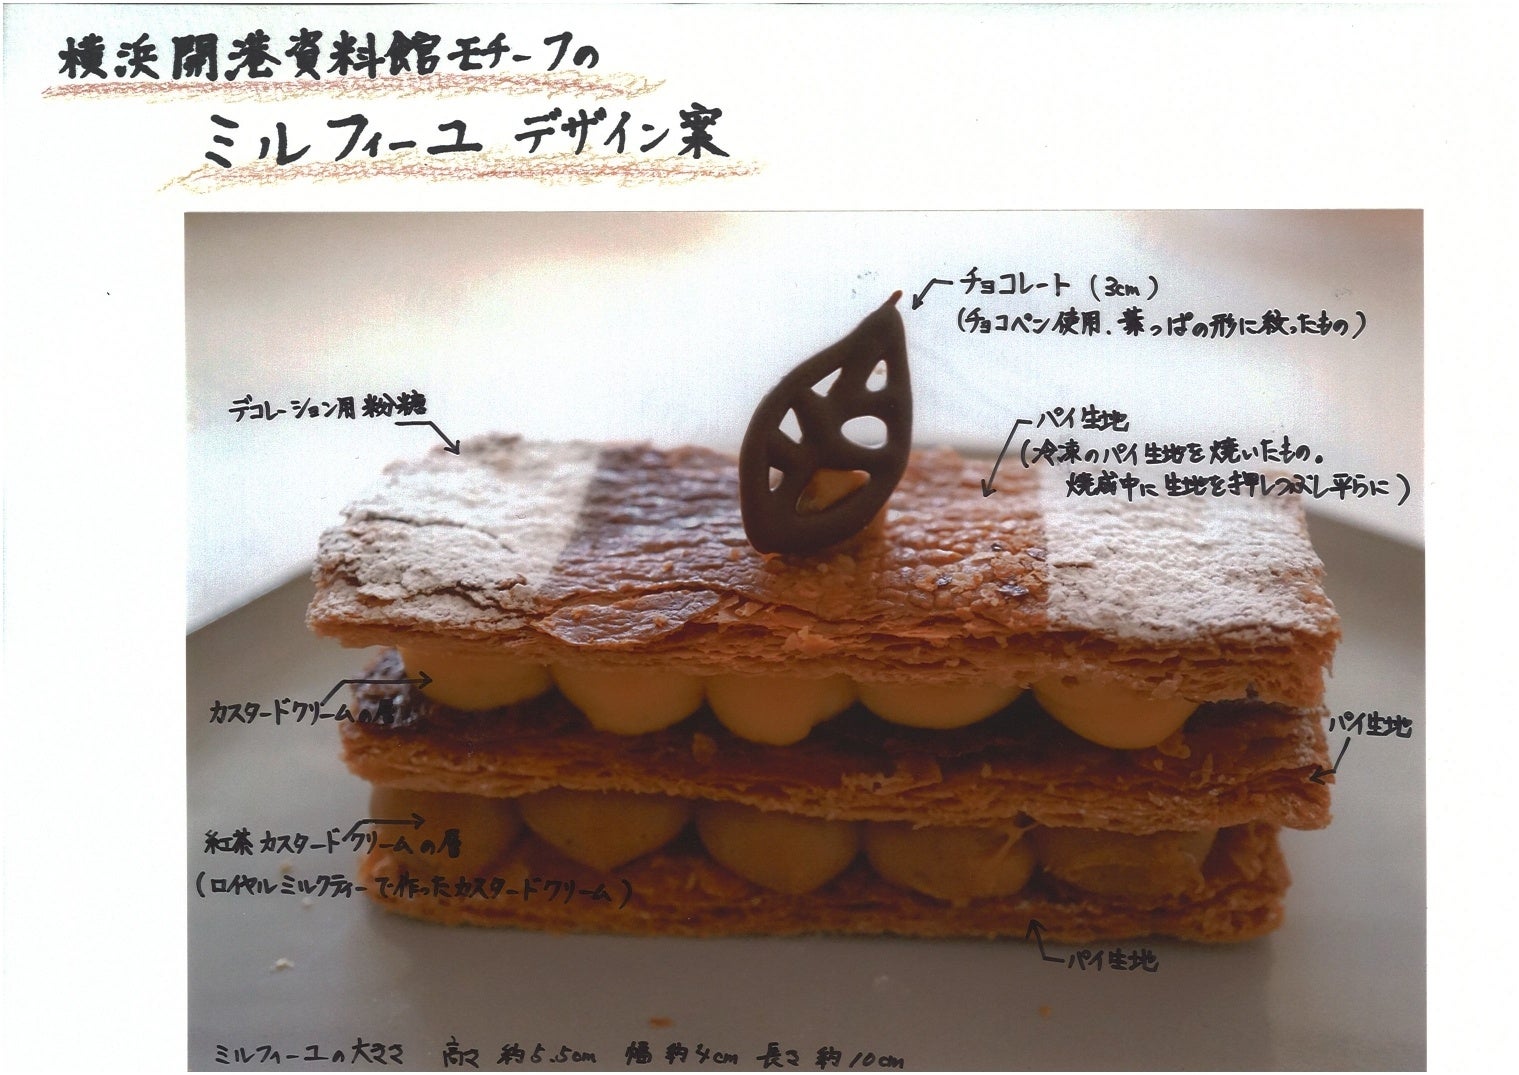 横浜開港資料館モチーフの
ミルフィーユ デザイン案
チョコレート (3cm)
(チョコペン使用.葉っぱの形に絞ったもの)
デコレーション用粉糖
パイ生地
(冷凍のパイ生地を焼いたもの。
焼成中に生地を押しつぶし平らに)
カスタードクリームの層
パイ生地
紅茶カスタードクリームの層
(ロイヤルミルクティーで作ったカスタードクリーム)
パイ生地
ミルフィーユの大きさ 高さ 約5.5cm 幅 約4cm 長さ 約10cm